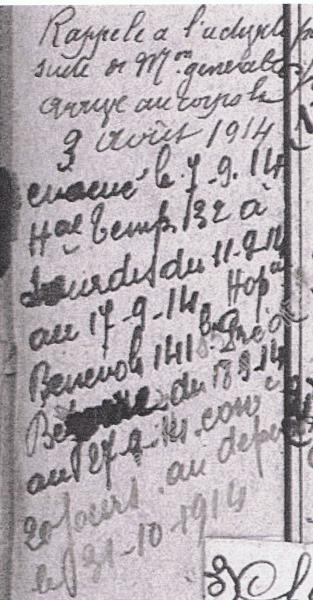 Rappelé a l'activité
suite de M^on générale
arrivé au corps le
3 Août 1914
évacué le 7-9-14
H^al temp. 132 à
Lourdes du 11-9-14
au 17-9-14. Hop^al
Bénévole 141^bis
du 18 9 14
au 27-9-14. conv^é
20 jours. au dépôt
le 31-10-1914